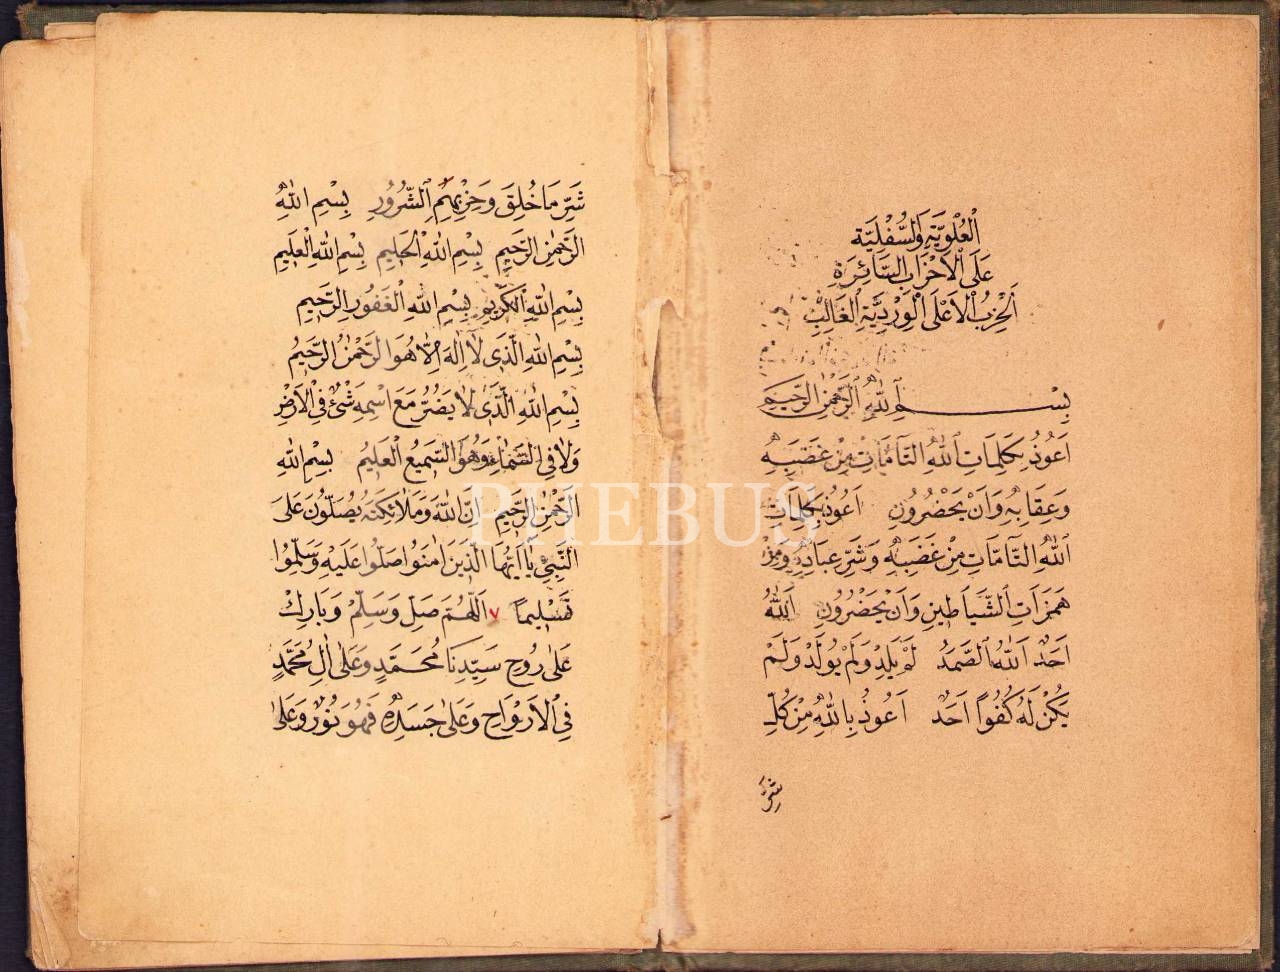 اَلْعُلْوِيَّةِ وَالسُّفْلِيَّةِ
عَلَى الْاَحْزَابِ السَّائِرَةِ
اَلْحِزْبُ الْاَعْلَى الْوِرْدِيَّةِ الْغَالِبِ
بِسْمِ اللهِ الرَّحْمٰنِ الرَّحِيمِ
اَعُوذُ بِكَلِمَاتِ اللهِ التَّآمَّاتِ مِنْ غَضَبِهِ
وَعِقَابِهِ وَاَنْ يَحْضُرُونِ اَعُوذُ بِكَلِمَاتِ
اللهِ التَّآمَّاتِ مِنْ غَضَبِهِ وَشَرِّ عِبَادِهِ وَمِنْ
هَمَزَاتِ الشَّيَاطِينِ وَاَنْ يَحْضُرُونِ اَللهُ
اَحَدٌ اَللهُ الصَّمَدُ لَمْ يَلِدْ وَلَمْ يُولَدْ وَلَمْ
يَكُنْ لَهُ كُفُوًا اَحَدٌ اَعُوذُ بِاللهِ مِنْ كُلِّ
شَرِّ
شَرِّ مَا خُلِقَ وَحِزْبِهِمِ الشُّرُورِ بِسْمِ اللهِ
الرَّحْمٰنِ الرَّحِيمِ بِسْمِ اللهِ الْحَلِيمِ بِسْمِ اللهِ الْعَلِيمِ
بِسْمِ اللهِ الْكَرِيمِ بِسْمِ اللهِ الْغَفُورِ الرَّحِيمِ
بِسْمِ اللهِ الَّذِى لَآ اِلٰهَ اِلَّا هُوَ الرَّحْمٰنُ الرَّحِيمُ
بِسْمِ اللهِ الَّذِى لَا يَضُرُّ مَعَ اسْمِهِ شَىْءٌ فِى الْاَرْضِ
وَلَا فِى السَّمَاءِ وَهُوَ السَّمِيعُ الْعَلِيمُ بِسْمِ اللهِ
الرَّحْمٰنِ الرَّحِيمِ اِنَّ اللهَ وَمَلَائِكَتَهُ يُصَلُّونَ عَلَى
النَّبِىِّ يَا اَيُّهَا الَّذِينَ اٰمَنُوا صَلُّوا عَلَيْهِ وَسَلِّمُوا
تَسْلِيمًا ٧ اَللّٰهُمَّ صَلِّ وَسَلِّمْ وَبَارِكْ
عَلٰى رُوحِ سَيِّدِنَا مُحَمَّدٍ وَعَلٰى اٰلِ مُحَمَّدٍ
فِى الْاَرْوَاحِ وَعَلٰى جَسَدِهِ فَهُوَ نُورٌ وَعَلٰى
PHEBUS